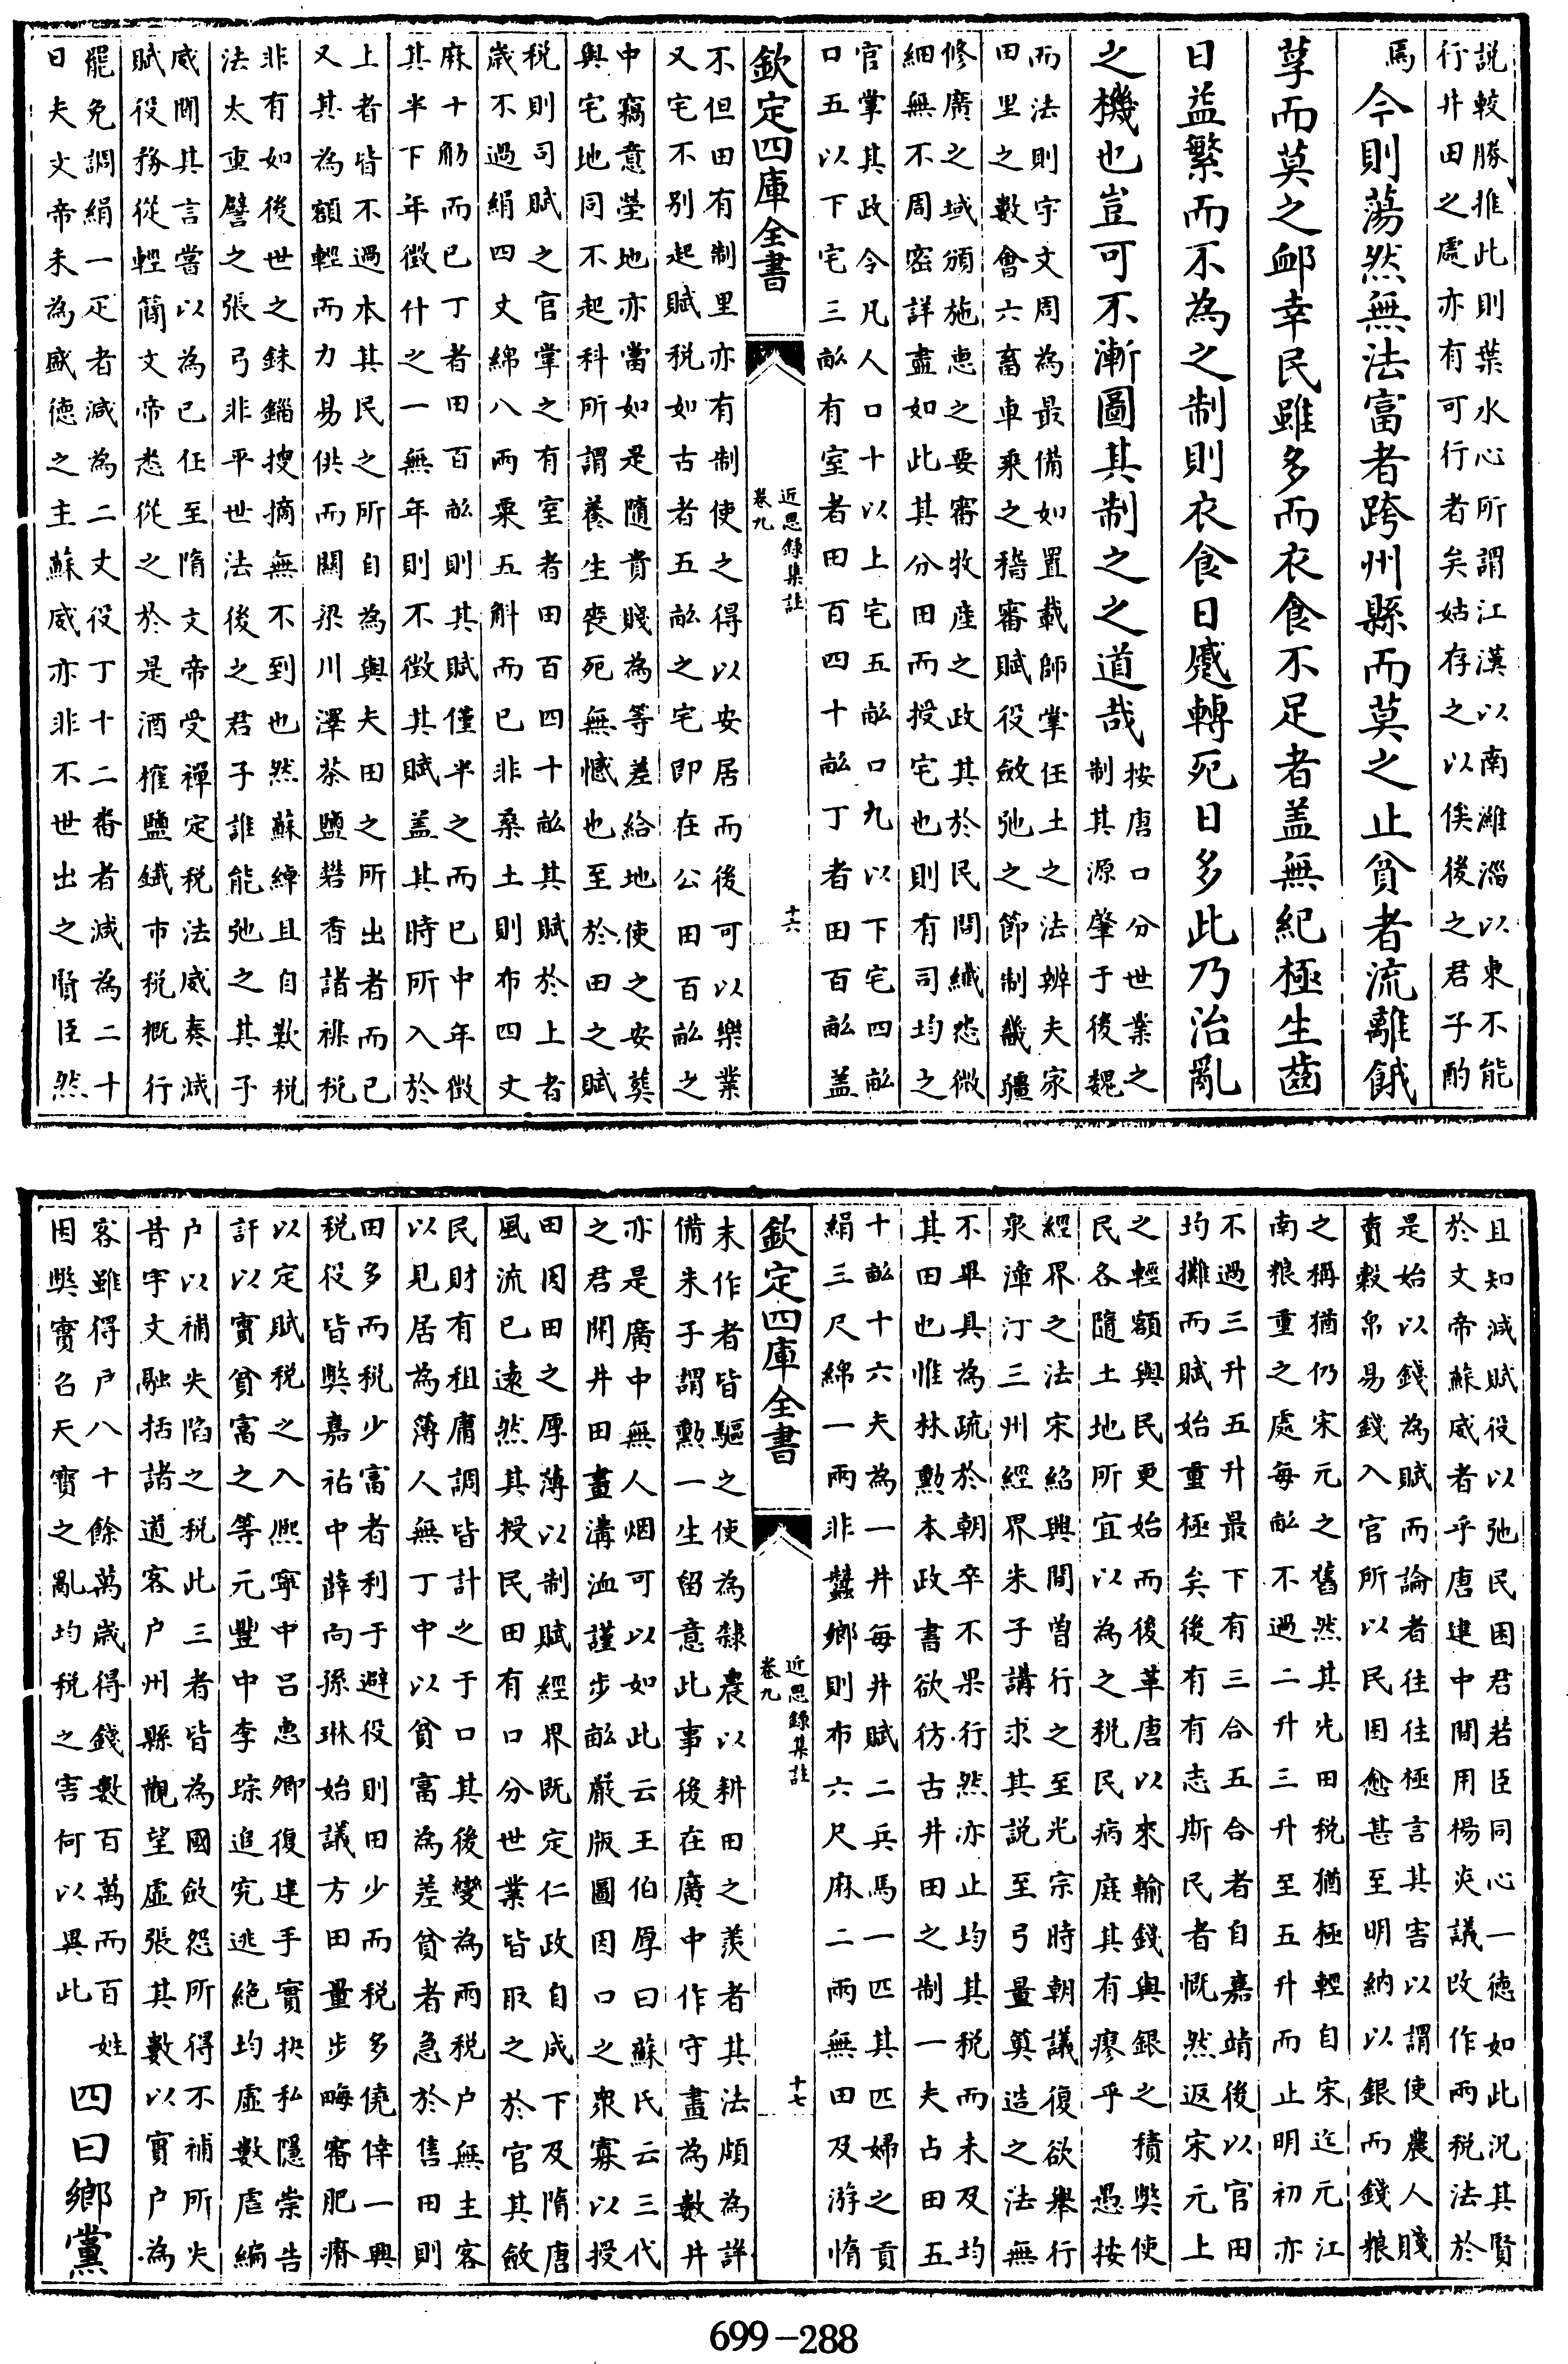 説較勝推此則葉水心所謂江漢以南濰淄以東不能
行井田之處亦有可行者矣姑存之以俟後之君子酌
焉 今則蕩然無法富者跨州縣而莫之止貧者流離餓
莩而莫之䘏幸民雖多而衣食不足者盖無紀極生齒
日益繁而不為之制則衣食日蹙轉死日多此乃治亂
之機也豈可不漸圖其制之之道哉
按唐口分世業之
制其源肇于後魏
而法則宇文周為最備如置載師掌任土之法辨夫家
田里之數會六畜車乘之稽審賦役斂弛之節制畿疆
修廣之域頒施惠之要審牧產之政其於民間纖悉微
細無不周密詳盡如此其分田而授宅也則有司均之
官掌其政令凡人口十以上宅五畝口九以下宅四畝
口五以下宅三畝有室者田百四十畝丁者田百畝盖
欽定四庫全書
近思錄集註
卷九
十六
不但田有制里亦有制使之得以安居而後可以樂業
又宅不别起賦税如古者五畝之宅即在公田百畝之
中竊意塋地亦當如是隨貴賤為等差給地使之安葬
與宅地同不起科所謂養生喪死無憾也至於田之賦
税則司賦之官掌之有室者田百四十畝其賦於上者
歲不過絹四丈綿八兩粟五斛而已非桑土則布四丈
麻十觔而已丁者田百畝則其賦僅半之而已中年徵
其半下年徵什之一無年則不徵其賦盖其時所入於
上者皆不過本其民之所自為與夫田之所出者而已
又其為額輕而力易供而關梁川澤茶鹽礬香諸襍税
非有如後世之銖錙搜摘無不到也然蘇綽且自歎税
法太重譬之張弓非平世法後之君子誰能弛之其子
威聞其言當以為已任至隋文帝受禪定税法威奏減
賦役務從輕簡文帝悉從之於是酒榷鹽鐵市税概行
罷免調絹一疋者減為二丈役丁十二番者減為二十
日夫文帝未為盛德之主蘇威亦非不世出之賢臣然
且知減賦役以弛民困君若臣同心一德如此況其賢
於文帝蘇威者乎唐建中間用楊炎議改作兩税法於
是始以錢為賦而論者往往極言其害以謂使農人賤
賣穀帛易錢入官所以民困愈甚至明納以銀而錢粮
之稱猶仍宋元之舊然其先田税猶極輕自宋迄元江
南粮重之處每畝不過二升三升至五升而止明初亦
不過三升五升最下有三合五合者自嘉靖後以官田
均攤而賦始重極矣後有有志斯民者慨然返宋元上
之輕額與民更始而後革唐以來輸錢與銀之積獘使
民各隨土地所宜以為之税民病庶其有瘳乎 愚按
經界之法宋紹興間曽行之至光宗時朝議復欲舉行
泉漳汀三州經界朱子講求其説至弓量算造之法無
不畢具為疏於朝卒不果行然亦止均其税而未及均
其田也惟林勲本政書欲彷古井田之制一夫占田五
十畝十六夫為一井每井賦二兵馬一匹其匹婦之貢
絹三尺綿一兩非蠶鄉則布六尺麻二兩無田及游惰
欽定四庫全書
近思錄集註
卷九
十七
末作者皆驅之使為隸農以耕田之羡者其法頗為詳
備朱子謂勲一生留意此事後在廣中作守畫為數井
亦是廣中無人烟可以如此云王伯厚曰蘇氏云三代
之君開井田畫溝洫謹步畝嚴版圖因口之衆寡以授
田因田之厚薄以制賦經界既定仁政自成下及隋唐
風流已遠然其授民田有口分世業皆取之於官其斂
民財有租庸調皆計之于口其後變為兩税户無主客
以見居為薄人無丁中以貧富為差貧者急於售田則
田多而税少富者利于避役則田少而税多僥倖一興
税役皆獘嘉祐中薛向孫琳始議方田量步畮審肥瘠
以定賦税之入熈寧中吕惠卿復建手實抉私隱崇告
訐以實貧富之等元豐中李琮追究逃絶均虚數虐編
户以補失陷之税此三者皆為國斂怨所得不補所失
昔宇文融括諸道客户州縣觀望虚張其數以實户為
客雖得户八十餘萬歲得錢數百萬而百姓
困獘實召天寶之亂均税之害何以異此
四曰鄉黨
699-288